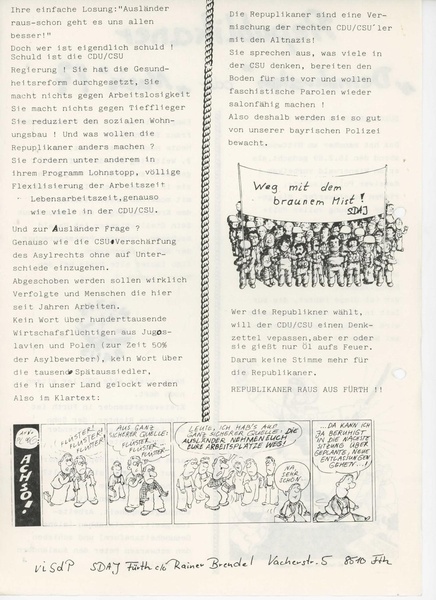 Ihre einfache Losung:"Ausländer
raus-schon geht es uns allen
besser!"
Doch wer ist eigentlich schuld !
Schuld ist die CDU/CSU
Regierung ! Sie hat die Gesund-
heitsreform durchgesetzt, Sie
macht nichts gegen Arbeitslosigkeit
Sie macht nichts gegen Tiefflieger
Sie reduziert den sozialen Wohn-
ungsbau ! Und was wollen die
Repuplikaner anders machen ?
Sie fordern unter anderem in
ihrem Programm Lohnstopp, völlige
Flexilisierung der Arbeitszeit
- Lebensarbeitszeit,genauso
wie viele in der CDU/CSU.
Und zur Ausländer Frage ?
Genauso wie die CSU Verschärfung
des Asylrechts ohne auf Unter-
schiede einzugehen.
Abgeschoben werden sollen wirklich
Verfolgte und Menschen die hier
seit Jahren Arbeiten.
Kein Wort über hunderttausende
Wirtschafsflüchtigen aus Jugos-
lavien und Polen (zur Zeit 50%
der Asylbewerber), kein Wort über
die tausende Spätaussiedler,
die in unser Land gelockt werden
Also im Klartext:
Die Repuplikaner sind eine Ver-
mischung der rechten CDU/CSU'ler
mit den Altnazis!
Sie sprechen aus, was viele in
der CSU denken, bereiten den
Boden für sie vor und wollen
faschistische Parolen wieder
salonfähig machen !
Also deshalb werden sie so gut
von unserer bayrischen Polizei
bewacht.
Weg mit dem
braunem Mist!
SDAJ
Wer die Republikner wählt,
will der CDU/CSU einen Denk-
zettel vepassen,aber er oder
sie gießt nur Öl aufs Feuer.
Darum keine Stimme mehr für
die Republikaner.
REPUBLIKANER RAUS AUS FÜRTH !!
ACHSO!
FLÜSTER!
FLÜSTER!
FLÜSTER!
AUS GANZ
SICHERER QUELLE:
FLÜSTER
FLÜSTER
FLÜSTER
LEUTE, ICH HAB'S AUS
GANZ SICHERER QUELLE: DIE
AUSLÄNDER NEHMEN EUCH
EURE ARBEITSPLÄTZE WEG!
NA
SEHR
SCHÖN
...DA KANN ICH
JA BERUHIGT
IN DIE NÄCHSTE
SITZUNG ÜBER
GEPLANTE, NEUE
ENTLASSUNGEN
GEHEN...!
ViSdP SDAJ Fürth c/o Rainer Brendel Vacherstr. 5 8510 Fth